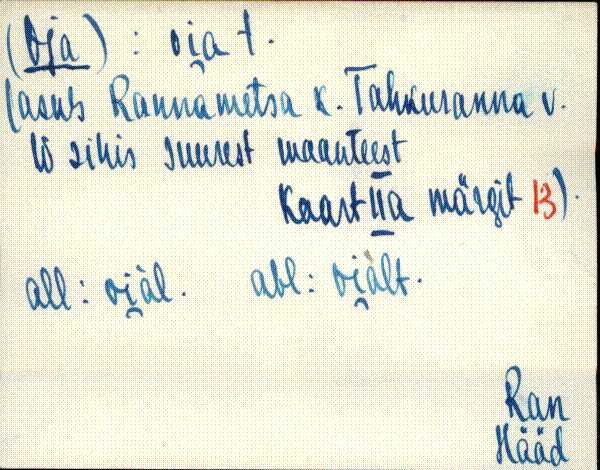 (Oja) : oi̯a t.
(asub Rannametsa k. Tahkuranna v.
lõ sihis suurest maanteest
Kaart IIa märgit 13).
all : oi̯àl. abl : oi̯àlt.
Ran
Hääd